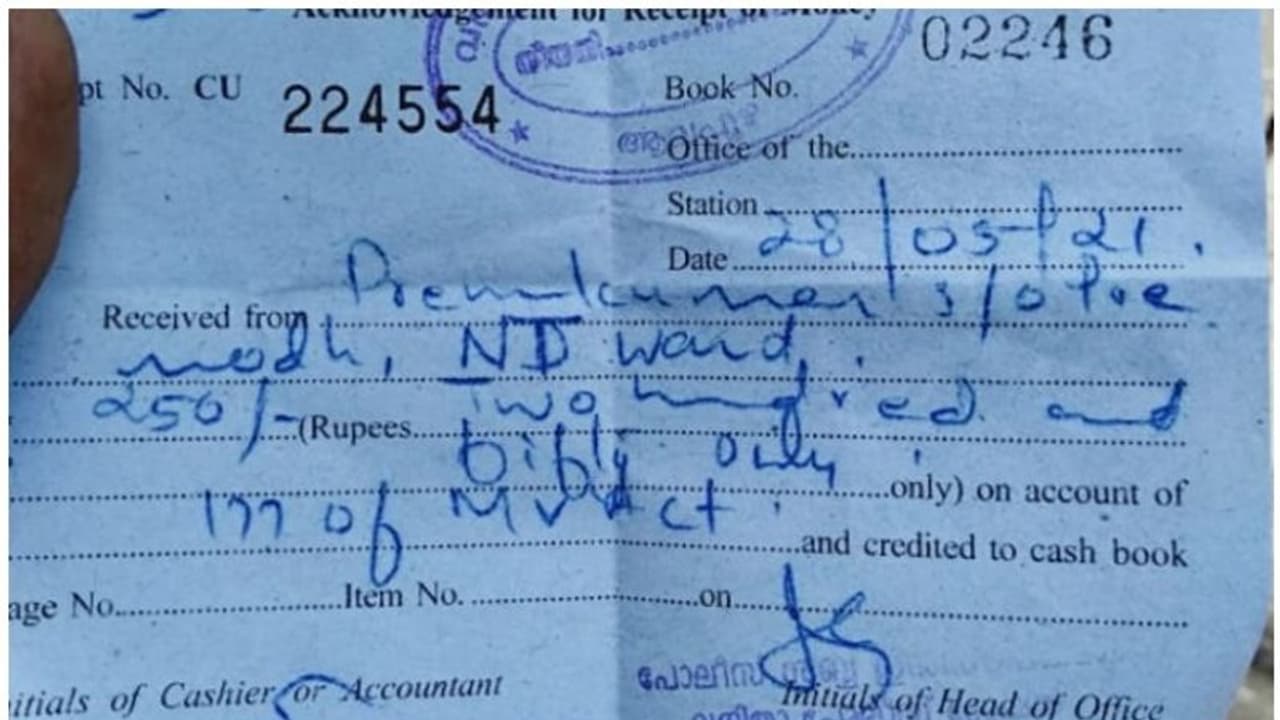 Acknowledgement for Receipt of Money
02246
pt No. CU 224554
Book No.
Office of the
Station
Date 28/05/21.
Received from Premkumar s/o Pre
modh, ND ward.
250/- (Rupees Two hundred and
Fifty only
only) on account of
177 of MV Act.
and credited to cash book
age No. Item No. on
പോലിസ്
itials of Cashier or Accountant
Initials of Head of Office